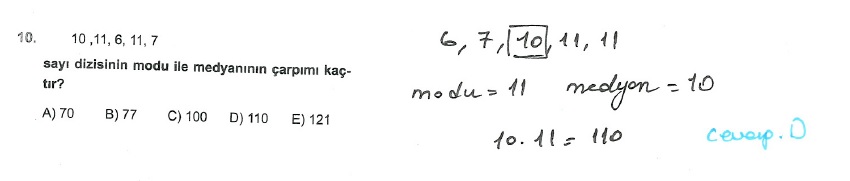 10. 10 ,11, 6, 11, 7
sayı dizisinin modu ile medyanının çarpımı kaç-
tır?
A) 70 B) 77 C) 100 D) 110 E) 121
6, 7, 10, 11, 11
modu = 11 medyan = 10
10. 11 = 110
cevap. D